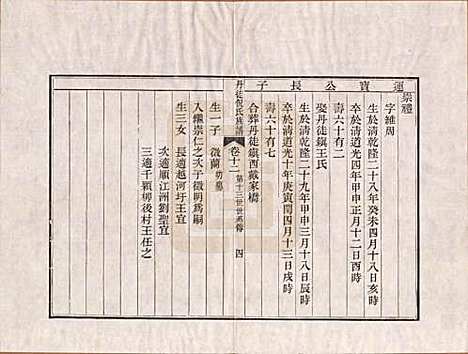 運寶公長子
崇禮
字維周
生於清乾隆二十八年癸未四月十八日亥時
卒於清道光四年甲申正月十二日酉時
壽六十有二
娶丹徒鎮王氏
生於清乾隆二十九年甲申三月十八日辰時
卒於清道光十年庚寅閏四月十三日戌時
壽六十有七
合葬丹徒鎮西戴家橋
丹徒倪氏族譜 卷十二 第十三世世系傳 四
生一子 徵蘭 幼墓
入繼崇仁之次子徵明爲嗣
生三女 長適越河圩王宜
次適順江洲劉聖宜
三適千顆柳後村王任之